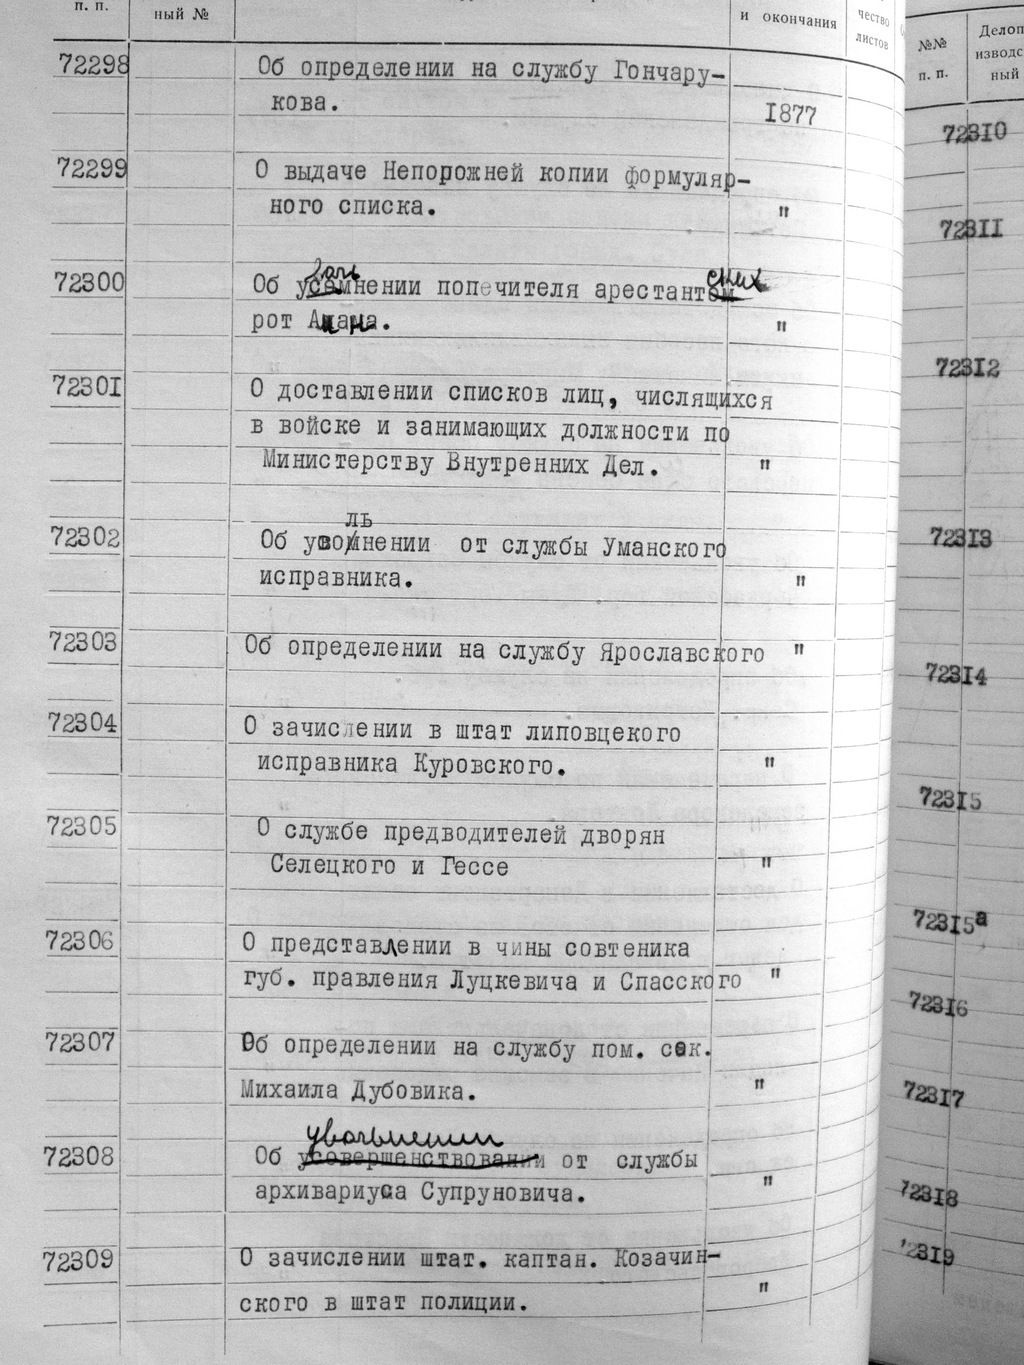 п. п.
ный №
и окончания
чество
листов
72298 Об определении на службу Гончару-
кова. 1877
72299 О выдаче Непорожней копии формуляр-
ного списка. "
72300 Об увольнении попечителя арестантских
рот "
72301 О доставлении списков лиц, числящихся
в войске и занимающих должности по
Министерству Внутренних Дел. "
ль
72302 Об увонении от службы Уманского
исправника. "
72303 Об определении на службу Ярославского "
72304 О зачислении в штат липовцекого
исправника Куровского. "
72305 О службе предводителей дворян
Селецкого и Гессе "
72306 О представлении в чины совтеника
губ. правления Луцкевича и Спасского "
72307 Об определении на службу пом. сек.
Михаила Дубовика. "
увольнении
72308 Об усовершенствовании от службы
архивариуса Супруновича. "
72309 О зачислении штат. каптан. Козачин-
ского в штат полиции. "
№№
п. п.
Делоп
изводс
ный
72310
72311
72312
72313
72314
72315
72315а
72316
72317
72318
72319